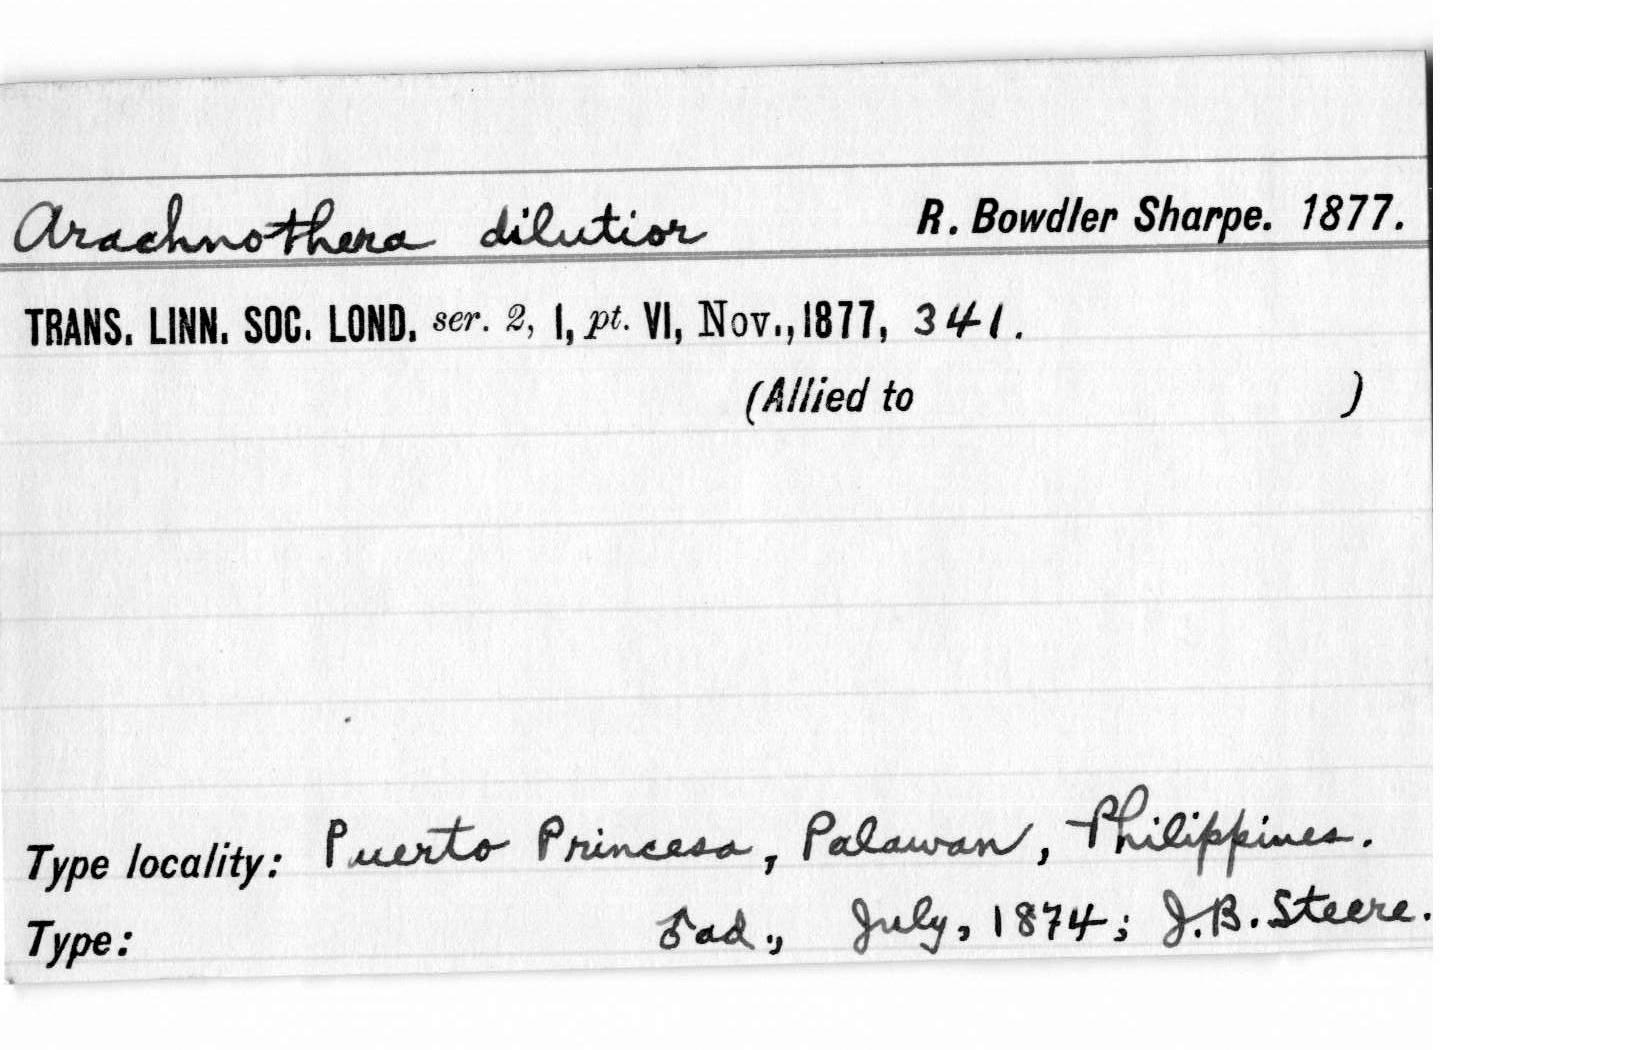 Arachnothera dilutior R. Bowdler Sharpe. 1877.
TRANS. LINN. SOC. LOND. ser. 2, I, pt. VI, Nov., 1877, 341.
(Allied to )
Type locality: Puerto Princesa, Palawan, Philippines.
Type: ♂ ad., July, 1874; J.B. Steere.